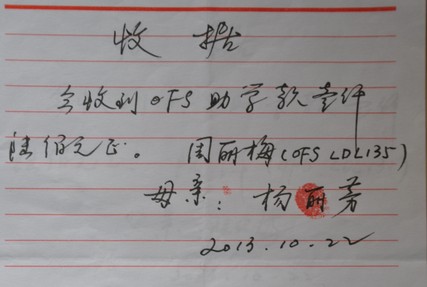 收据
今收到OFS助学款壹仟
陆佰元正。 周丽梅(OFS LDL135)
母亲：杨丽芳
2013.10.22